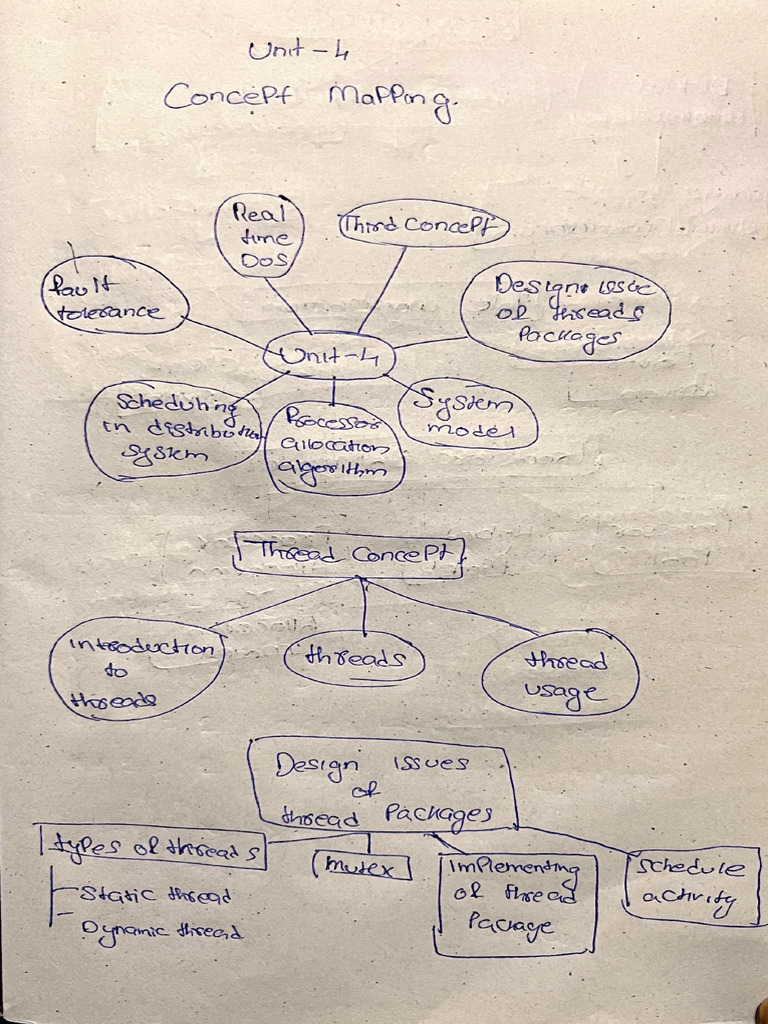 Unit-4
Concept Mapping.
Real
time
DOS
Third Concept
fault
tolerance
Design issue
of threads
Packages
Unit-4
Scheduling
in distribution
system
Processor
allocation
algorithm
System
model
Thread Concept
introduction
to
threads
threads
thread
usage
Design issues
of
thread Packages
types of threads
Static thread
Dynamic thread
mutex
implementing
of thread
Package
Schedule
activity